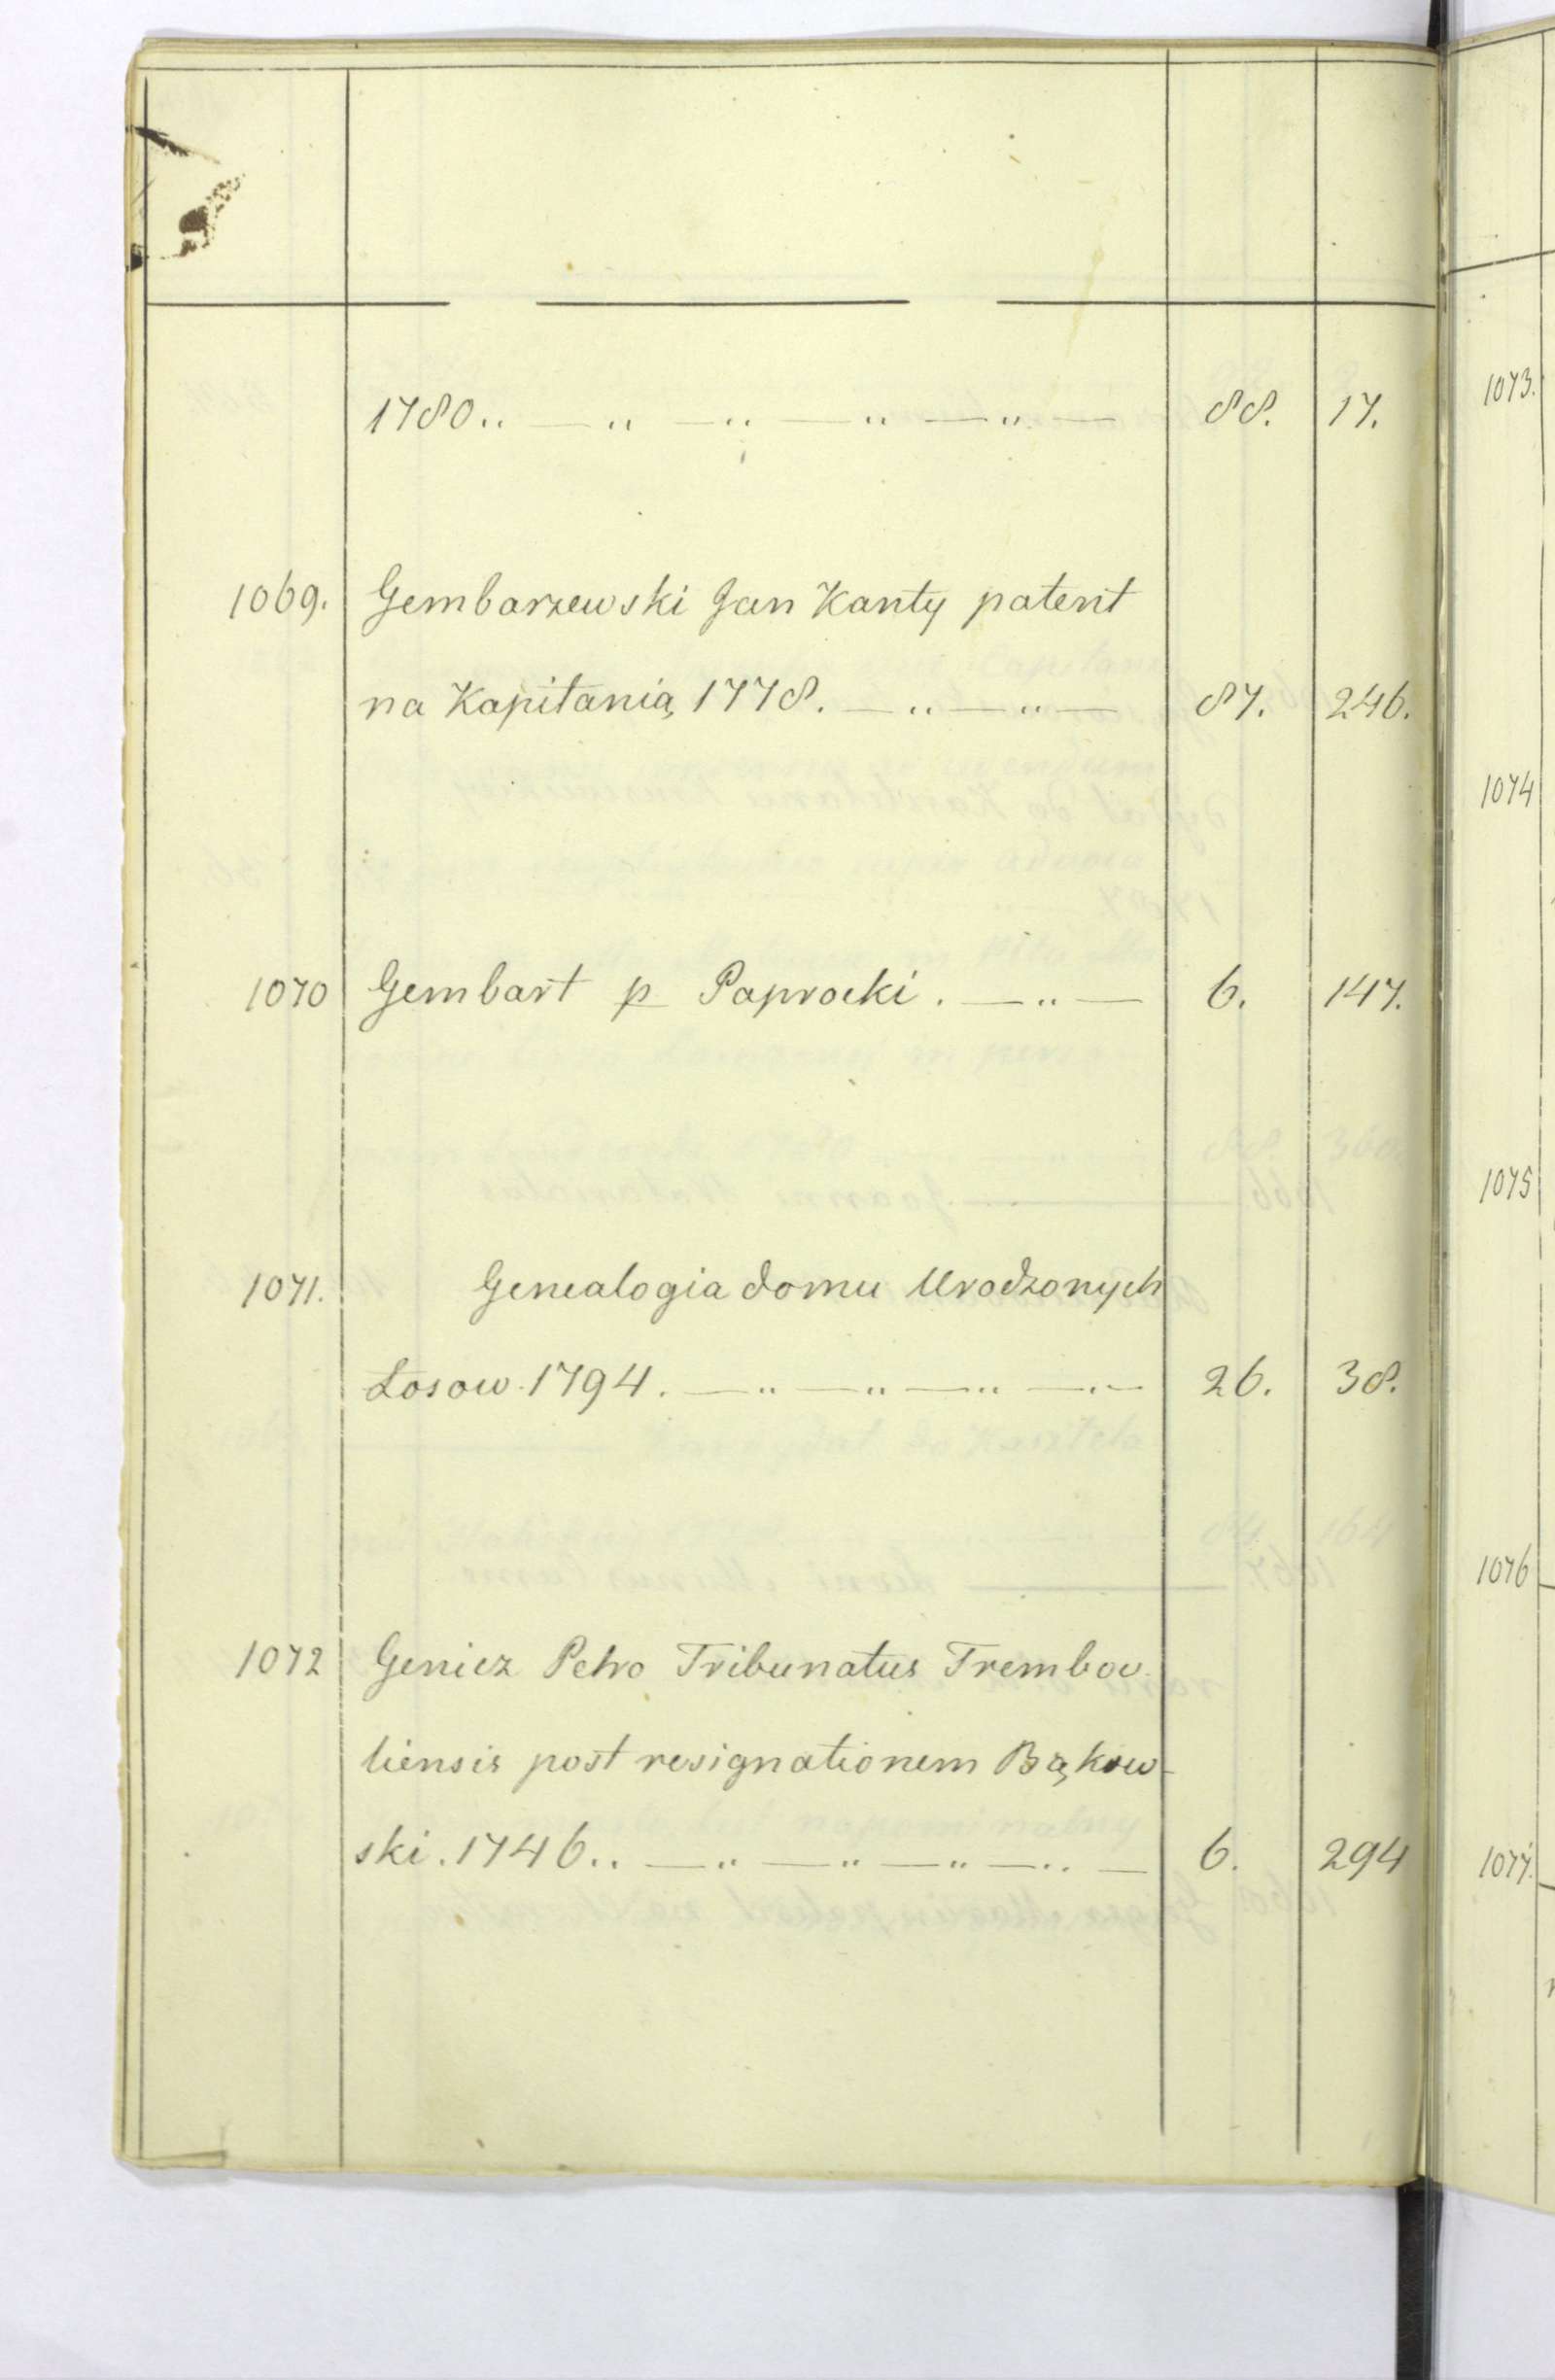 1780.. — " — " — " — " — 88. 17.
1069. Gembarzewski Jan Kanty patent
na Kapitanią 1778. — " — " — 87. 246.
1070 Gembart p Paprocki. — " — 6. 147.
1071. Genealogia domu Urodzonych
Łosow 1794. — " — " — " — " — 26. 38.
1072 Geniez Petro Tribunatus Trembow-
liensis post resignationem Bąkow-
ski. 1746.. — " — " — " — " — 6. 294
1073.
1074
1075
1076
1077.